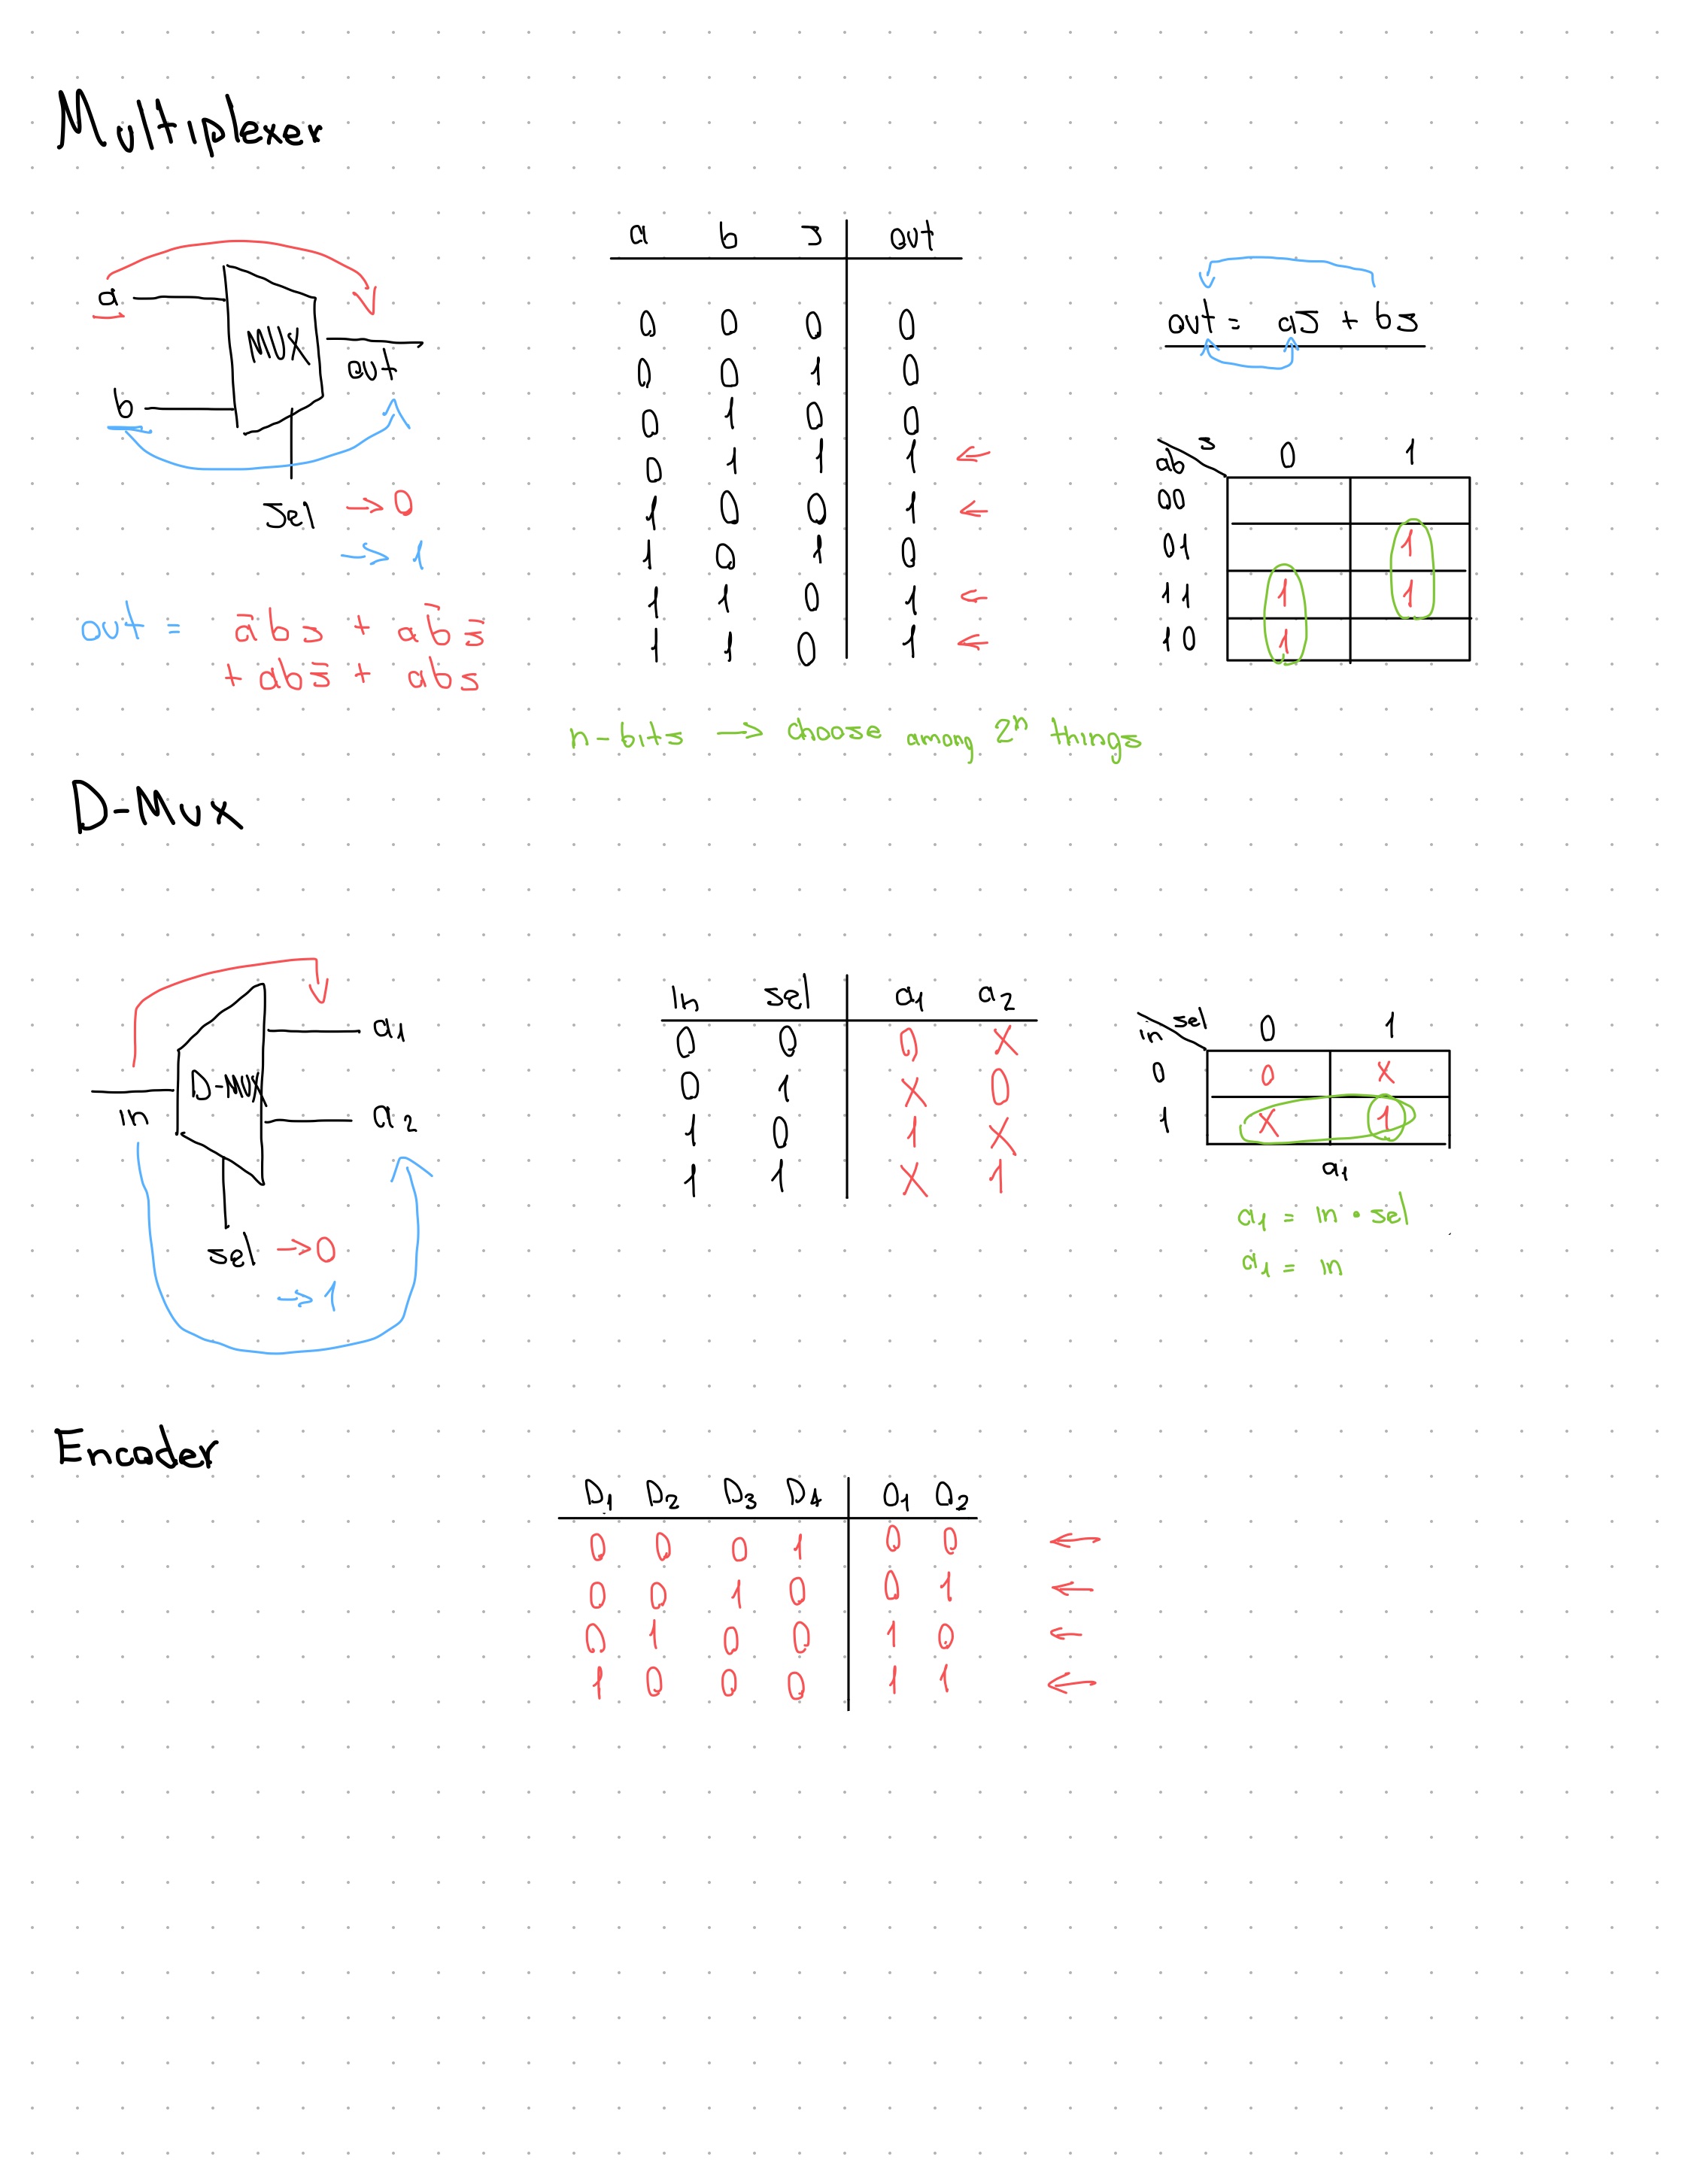 Multiplexer
a
b
MUX
out
sel → 0
→ 1
out = āb s + a b̄ s̄
+ ab s̄ + abs
a b s out
0 0 0 0
0 0 1 0
0 1 0 0
0 1 1 1 ←
1 0 0 1 ←
1 0 1 0
1 1 0 1 ←
1 1 0 1 ←
out = a s̄ + bs
ab s 0 1
00
01 1
11 1 1
10 1
n-bits → choose among 2ⁿ things
D-Mux
in
D-MUX
a₁
a₂
sel → 0
→ 1
In sel a₁ a₂
0 0 0 X
0 1 X 0
1 0 1 X
1 1 X 1
in sel 0 1
0 0 X
1 X 1
a₁
a₁ = in • sel
a₁ = in
Encoder
D₁ D₂ D₃ D₄ O₁ O₂
0 0 0 1 0 0 ←
0 0 1 0 0 1 ←
0 1 0 0 1 0 ←
1 0 0 0 1 1 ←